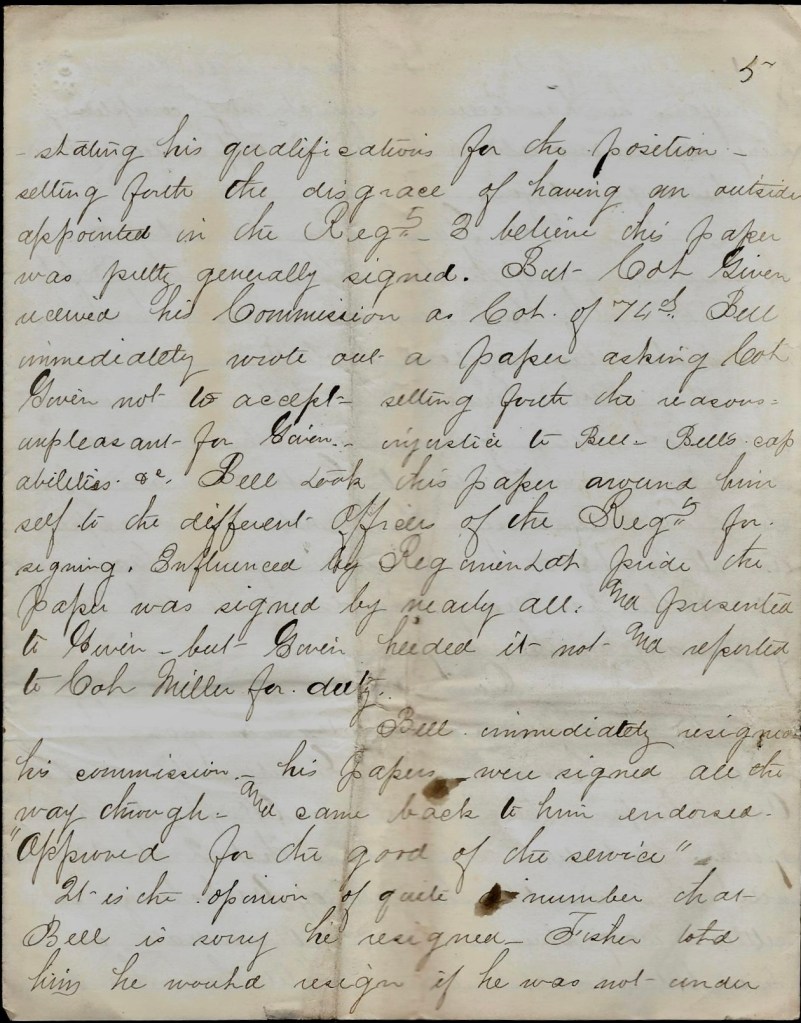 5
- stating his qualifications for the position -
setting forth the disgrace of having an outside
appointed in the Reg"5 - I believe this paper
was pretty generally signed. But Col. Given
received his Commission as Col. of 74th. Bell
immediately wrote out a paper asking Col.
Given not to accept - setting forth the reasons -
unpleasant for Given. - injustice to Bell - Bell's cap
abilities. &c. Bell took this paper around him
self to the different Officers of the Reg"5 for
signing. Influenced by Regimental pride the
paper was signed by nearly all. and presented
to Given - but Given heeded it not and reported
to Col. Miller for duty.
Bell immediately resigned
his commission. - his papers were signed all the
way through - and came back to him endorsed -
"Approved for the good of the service"
It is the opinion of quite a number that
Bell is sorry he resigned - Fisher told
him he would resign if he was not under